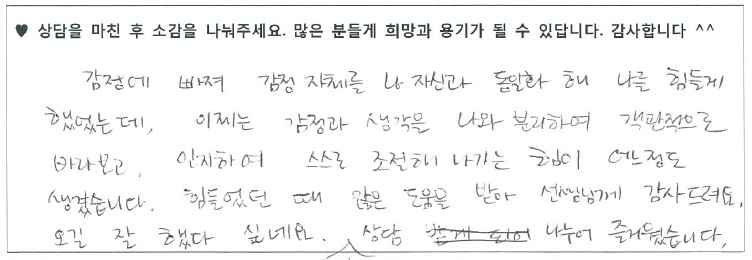 ♥ 상담을 마친 후 소감을 나눠주세요. 많은 분들게 희망과 용기가 될 수 있답니다. 감사합니다 ^^
감정에 빠져 감정 자체를 나 자신과 동일화 해 나를 힘들게
했었는데, 이제는 감정과 생각을 나와 분리하여 객관적으로
바라보고, 인지하여 스스로 조절해 나가는 힘이 어느정도
생겼습니다. 힘들었던 때 많은 도움을 받아 선생님께 감사드려요.
오길 잘 했다 싶네요. 상담 나누어 즐거웠습니다.